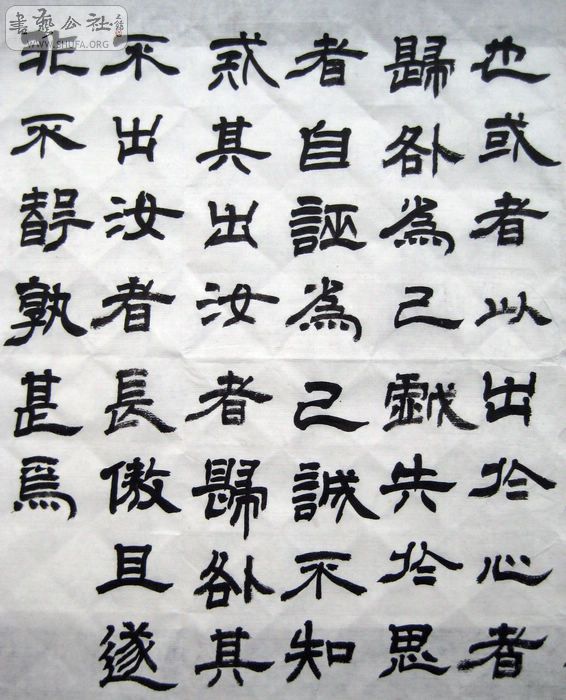 書藝公社
WWW.SHUFA.ORG
也或者以出於心者
歸咎為己戲失於思
者自誣為己誠不知
戒其出汝者歸咎其
不出汝者長傲且遂
非不智孰甚焉